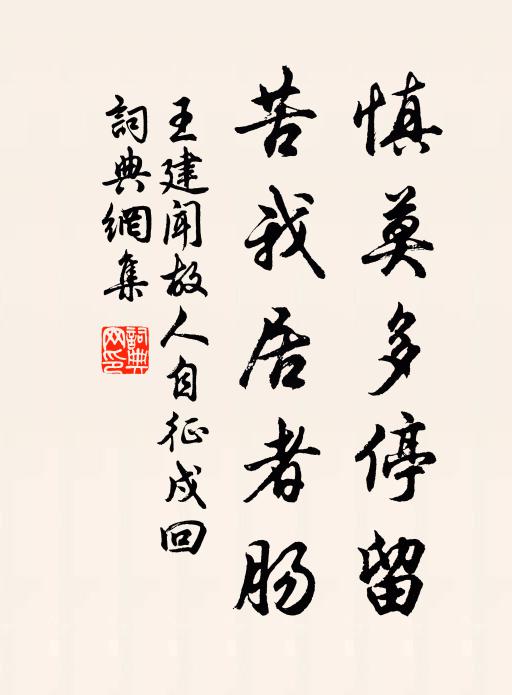 慎莫多停留
苦我居者肠
王建闻故人自征戍回
詞典網集
詞典网印